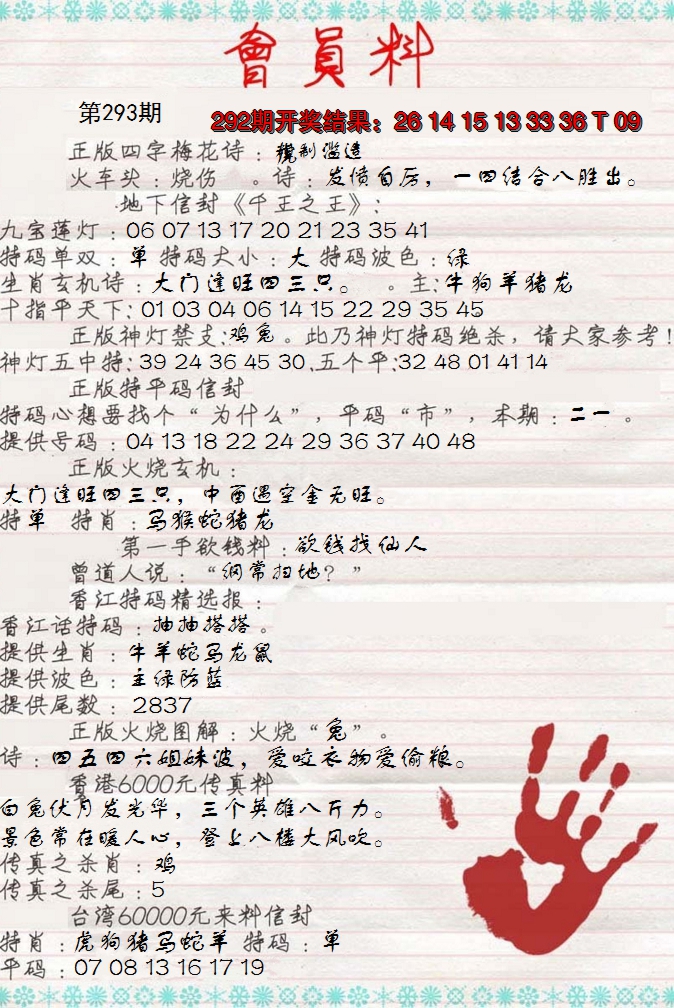 會員料
第293期
292期开奖结果：26 14 15 13 33 36 T 09
正版四字梅花诗：粗制滥造
火车头：烧伤 。诗：发愤自厉，一四结合八胜出。
地下信封《千王之王》：
九宝莲灯：06 07 13 17 20 21 23 35 41
特码单双：单 特码大小：大 特码波色：绿
生肖玄机诗：大门逢旺四三只。 。主：牛狗羊猪龙
十指平天下：01 03 04 06 14 15 22 29 35 45
正版神灯禁支：鸡兔。此乃神灯特码绝杀，请大家参考！
神灯五中特：39 24 36 45 30.五个平：32 48 01 41 14
正版特平码信封
特码心想要找个“为什么”，平码“市”，本期：二一 。
提供号码：04 13 18 22 24 29 36 37 40 48
正版火烧玄机：
大门逢旺四三只，中酉遇空金无旺。
特单 特肖：马猴蛇猪龙
第一手欲钱料：欲钱找仙人
曾道人说：“纲常扫地？”
香江特码精选报：
香江话特码：抽抽搭搭。
提供生肖：牛羊蛇马龙鼠
提供波色：主绿防蓝
提供尾数：2837
正版火烧图解：火烧“兔”。
诗：四五四六姐妹波，爱咬衣物爱偷粮。
香港6000元传真料
白兔伏月发光华，三个英雄八斤力。
景色常在暖人心，登上八楼大风吹。
传真之杀肖：鸡
传真之杀尾：5
台湾60000元来料信封
特肖：虎狗猪马蛇羊 特码：单
平码：07 08 13 16 17 19